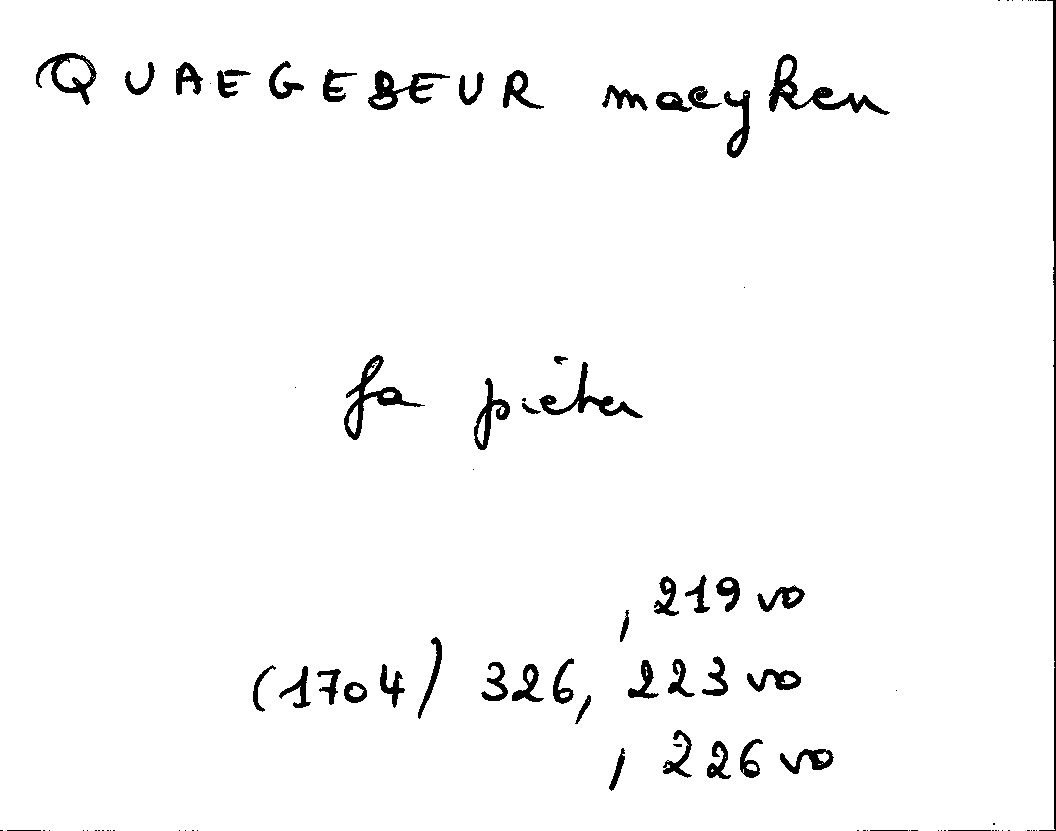 QUAEGEBEUR maeyken
fa pieter
, 219 vo
(1704) 326, 223 vo
, 226 vo